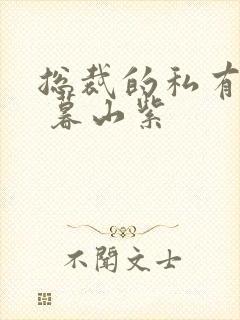 总裁的私有
暮山紫
不闻文士